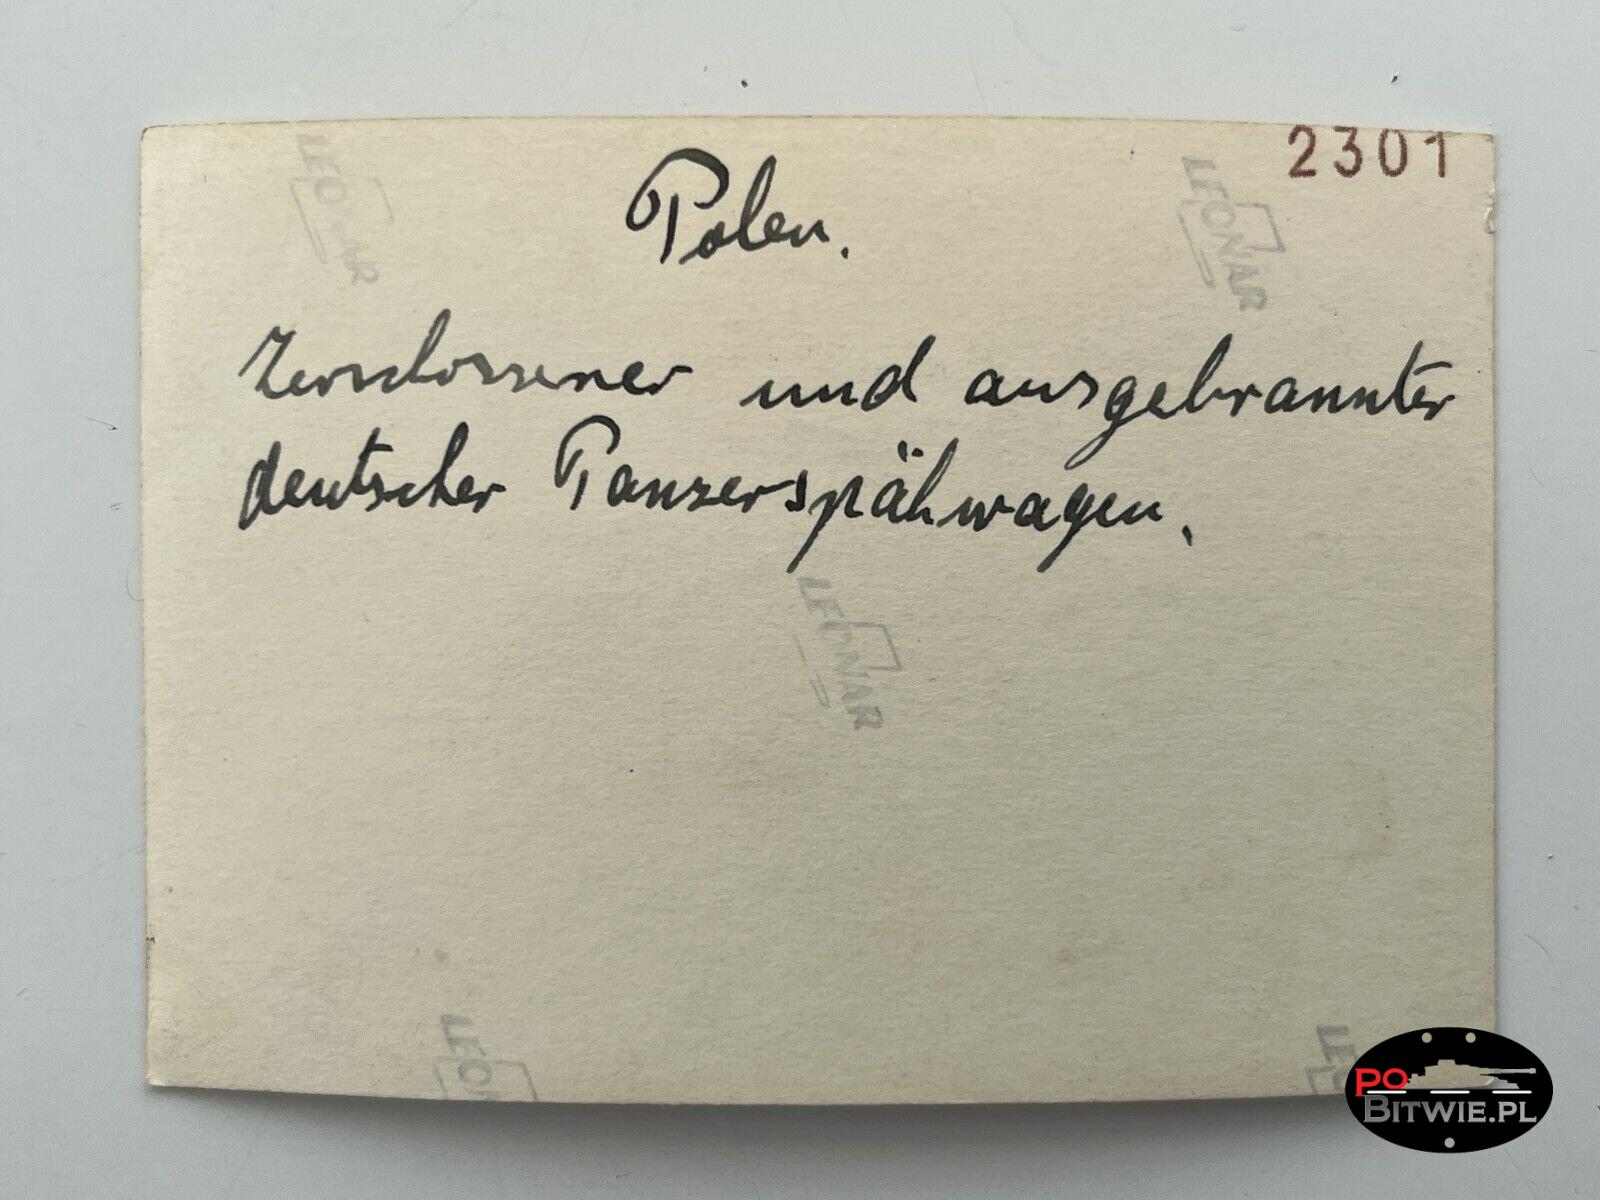 2301
Polen.
Zerschossener und ausgebrannter
deutscher Panzerspähwagen.
LEONAR
LEONAR
LEONAR
LEON
LEO
PO
BITWIE.PL